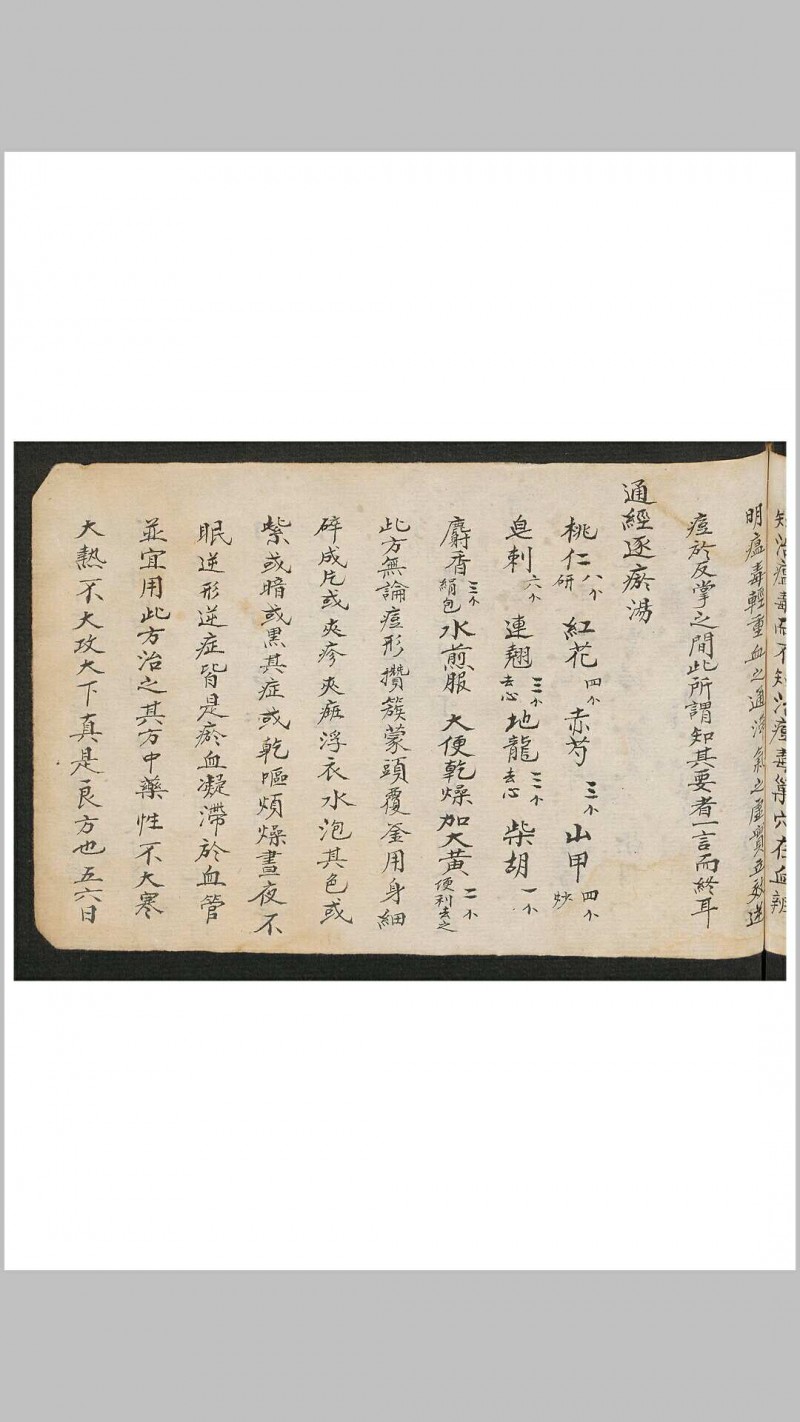 知治瘟毒而不知治痘毒巢穴在血辨
明瘟毒輕重血之通滯氣之虛實立救逆
痘於反掌之間此所謂知其要者一言而終耳
通經逐瘀湯
桃仁八个研 紅花四个 赤芍三个 山甲四个炒
皂刺六个 連翹三个去心 地龍三个去心 柴胡一个
麝香三个絹包 水煎服 大便乾燥加大黃二个便利去之
此方無論痘形攢簇蒙頭覆釜用身細
碎成片或夾疹夾痂浮衣水泡其色或
紫或暗或黑其症或乾嘔煩燥晝夜不
眠逆形逆症皆是瘀血凝滯於血管
並宜用此方治之其方中藥性不大寒
大熱不大攻大下真是良方也五六日